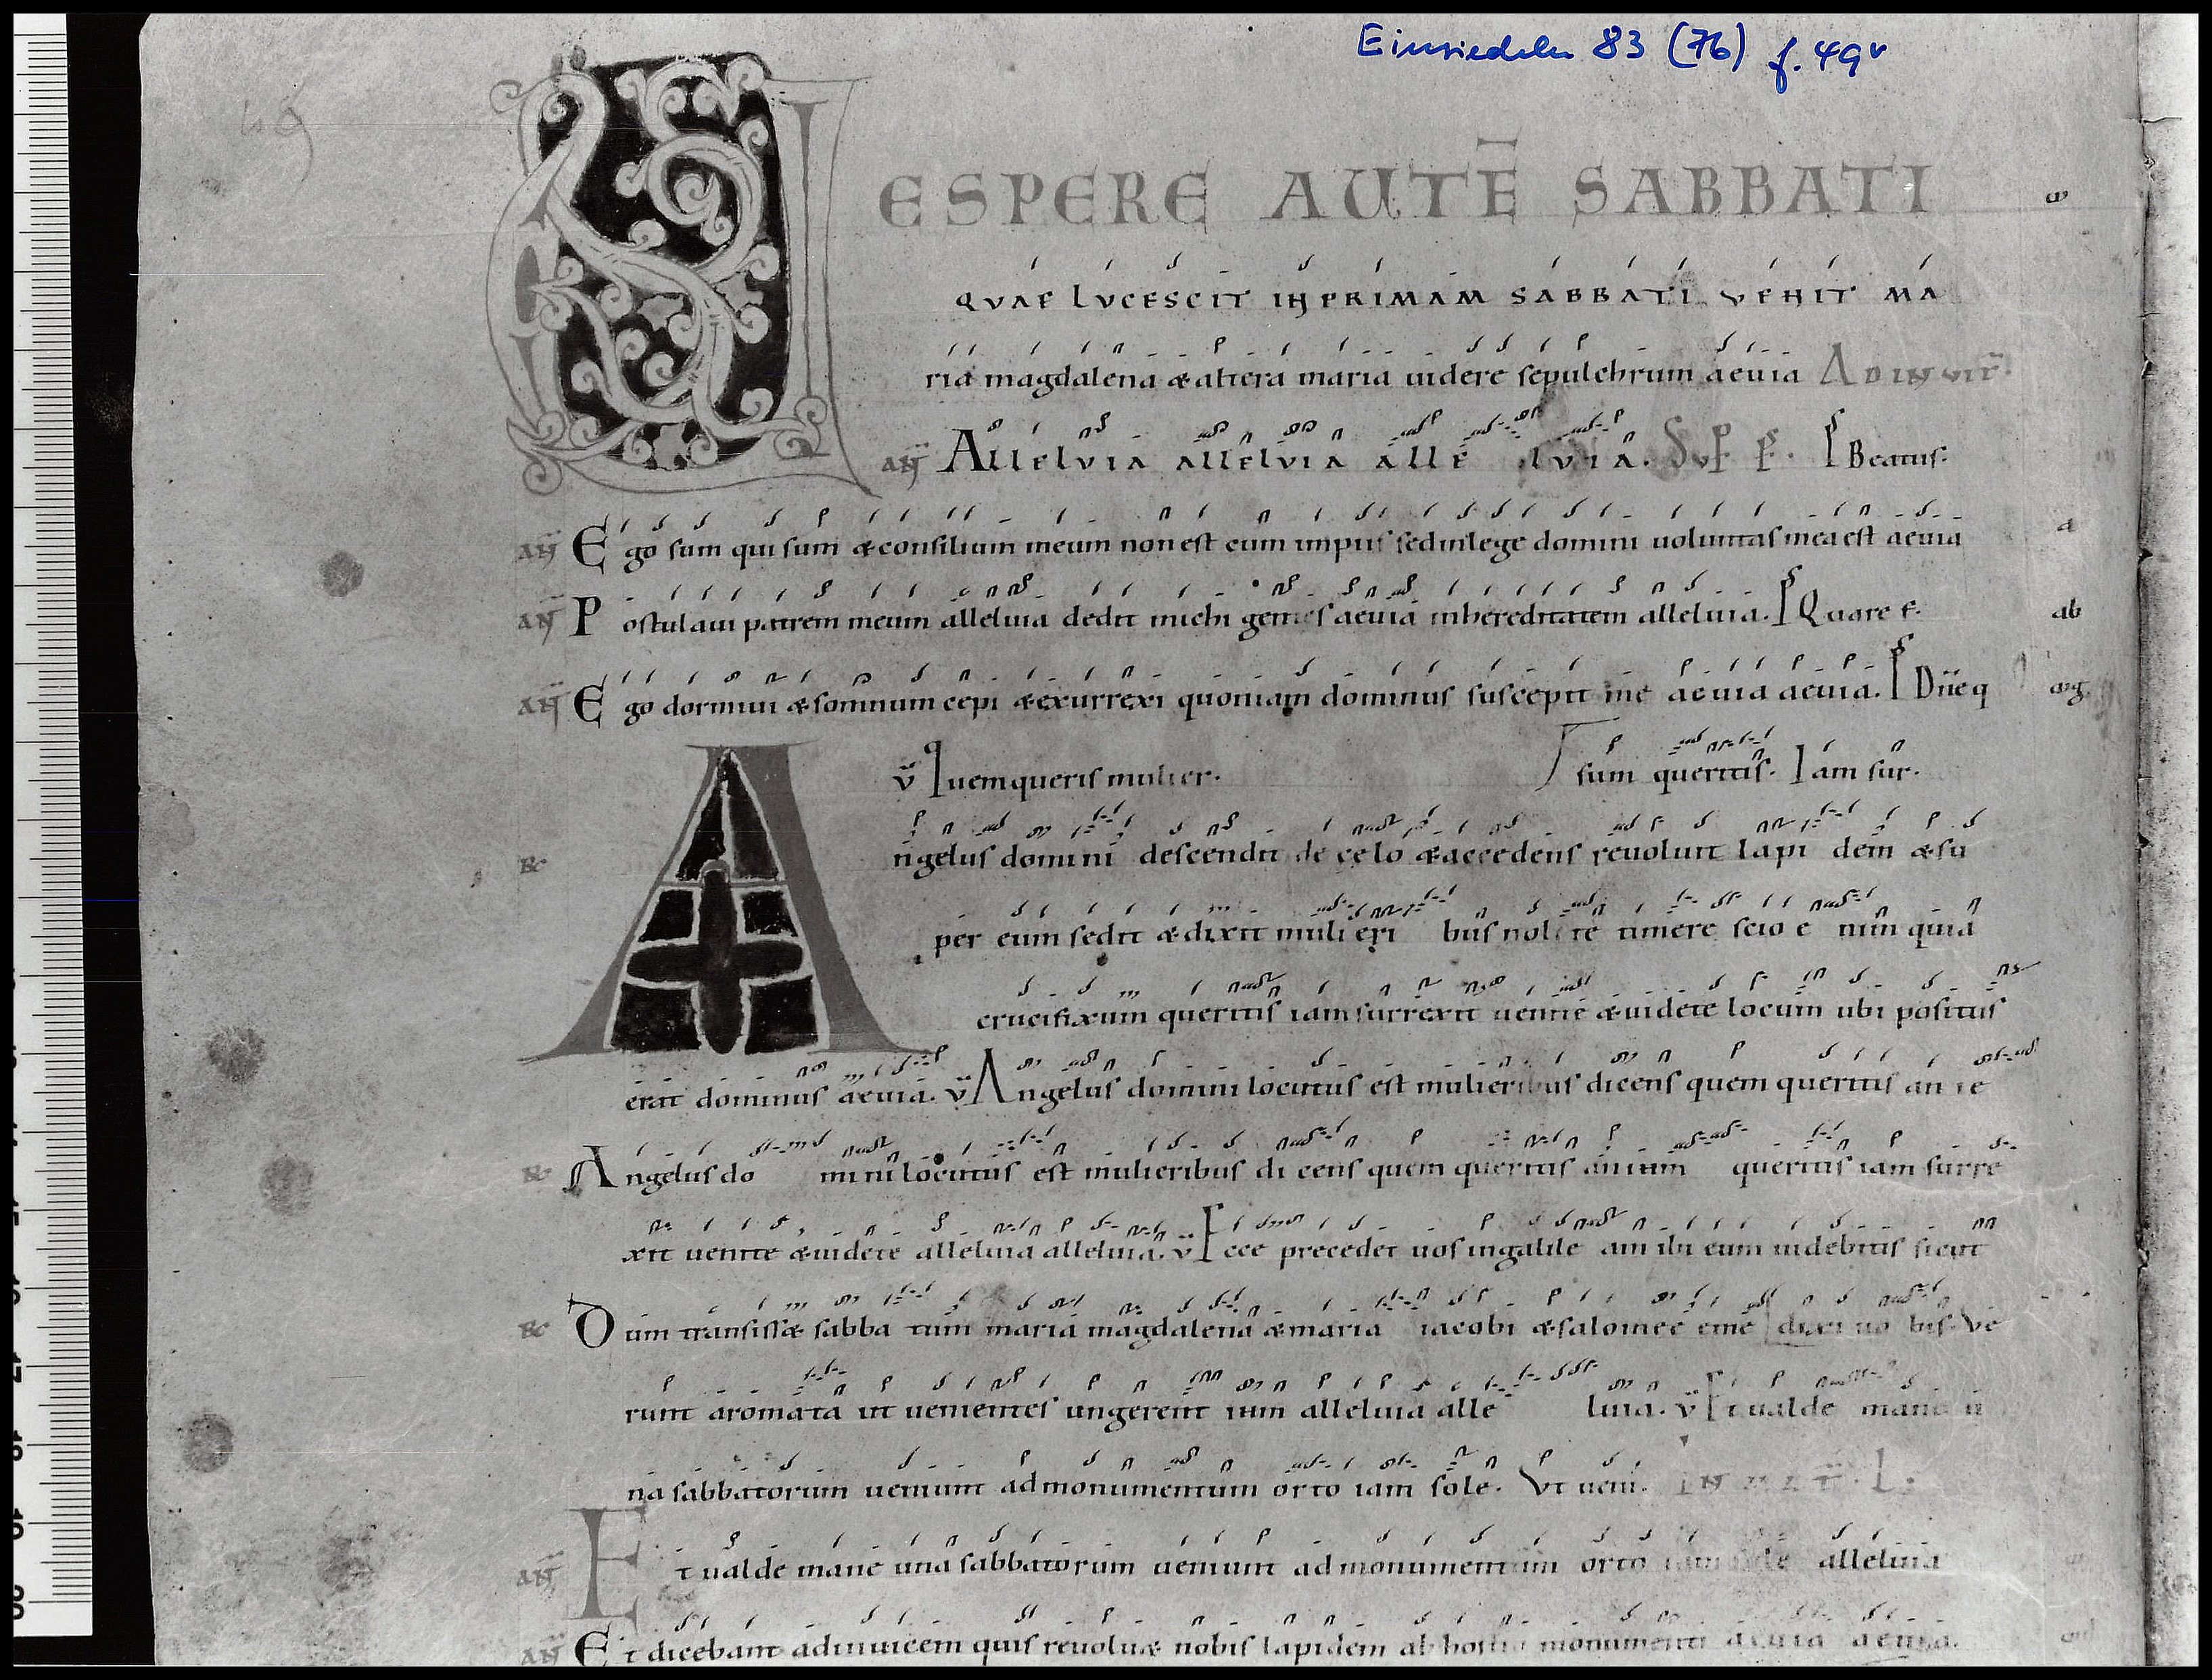 Einsiedeln 83 (76) f. 49v
49
VESPERE AUTĒ SABBATI
QVAE LVCESCIT IN PRIMAM SABBATI VENIT MA
ria magdalena & altera maria uidere sepulchrum aeuia AD INVIT
AN Allelvia allelvia allelvia. Beatus.
AN Ego sum qui sum & consilium meum non est cum impiis sed in lege domini uoluntas mea est aeuia a
AN Postulaui patrem meum alleluia dedit michi gentes aeuia in hereditatem alleluia. Quare f. ab
AN Ego dormiui & somnum cepi & exurrexi quoniam dominus suscepit me aeuia aeuia. Dn̄e q
v̄ Quem queris mulier. sum queritis. Iam sur.
R Angelus domini descendit de celo & accedens reuoluit lapidem & su
per eum sedit & dixit mulieribus nolite timere scio enim quia
crucifixum queritis iam surrexit uenite & uidete locum ubi positus
erat dominus aeuia. v̄ Angelus domini locutus est mulieribus dicens quem queritis an ie
R Angelus domini locutus est mulieribus dicens quem queritis an ium queritis iam surre
xit uenite & uidete alleluia alleluia. v̄ Ecce precedet uos in galileam ibi eum uidebitis sicut
R Dum transiss& sabbatum maria magdalena & maria iacobi & salomee eme dixi uobis. Ve
runt aromata ut uenientes ungerent ium alleluia alleluia. v̄ Et ualde mane u
na sabbatorum ueniunt ad monumentum orto iam sole. Vt ueni.
AN Et ualde mane una sabbatorum ueniunt ad monumentum orto iam sole alleluia
AN Et dicebant adinuicem quis reuolu& nobis lapidem ab hostio monumenti aeuia aeuia.